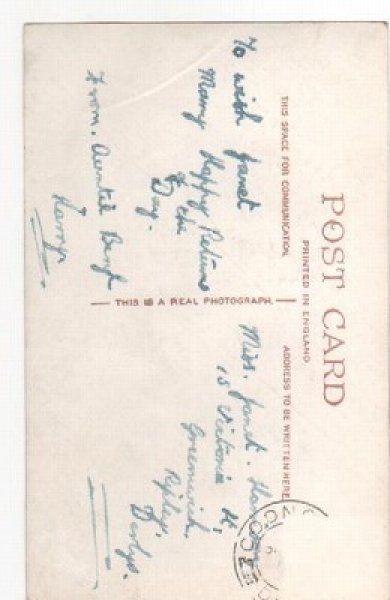 POST CARD
PRINTED IN ENGLAND
THIS SPACE FOR COMMUNICATION.
ADDRESS TO BE WRITTEN HERE
THIS IS A REAL PHOTOGRAPH.
To wish Janet
Many Happy Returns
of the
Day.
From. Auntie
Miss. Janet.
15 Victoria
Greenwich,
Ripley.
Derbys.